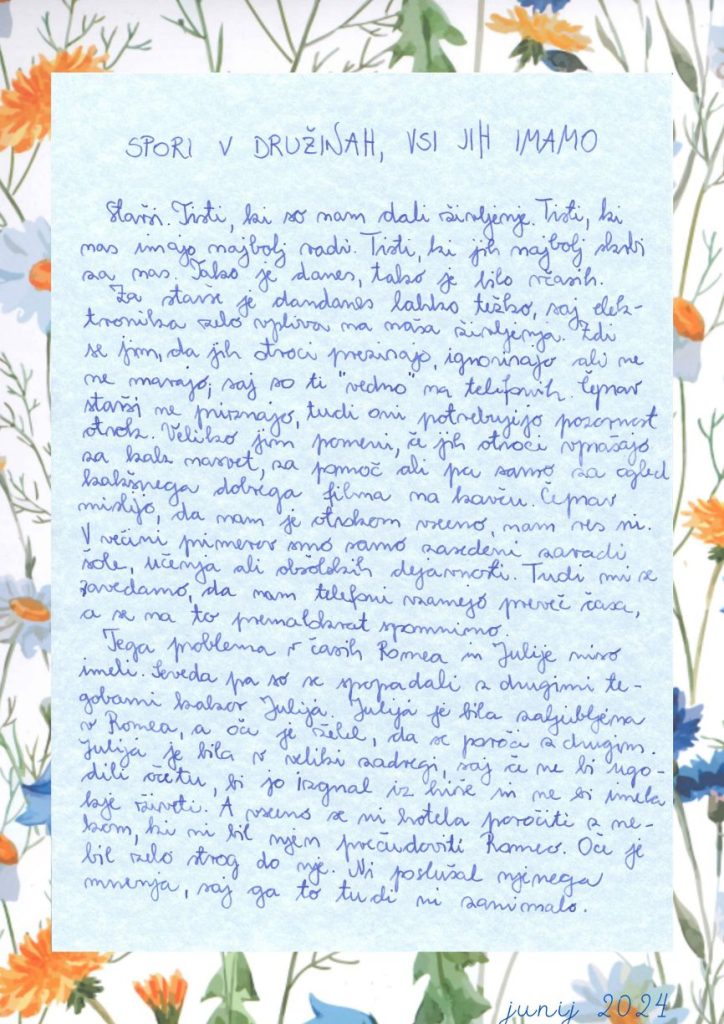 SPORI V DRUŽINAH, VSI JIH IMAMO
Starši. Tisti, ki so nam dali življenje. Tisti, ki
nas imajo najbolj radi. Tisti, ki jih najbolj skrbi
za nas. Tako je danes, tako je bilo včasih.
Za starše je dandanes lahko težko, saj elek-
tronika zelo vpliva na naša življenja. Zdi
se jim, da jih otroci prezirajo, ignorirajo ali ne
ne marajo, saj so ti "vedno" na telefonih. Čeprav
starši ne priznajo, tudi oni potrebujejo pozornost
otrok. Veliko jim pomeni, če jih otroci vprašajo
za kak nasvet, za pomoč ali pa samo za ogled
kakšnega dobrega filma na kavču. Čeprav
mislijo, da nam je otrokom vseeno, nam res ni.
V večini primerov smo samo zasedeni zaradi
šole, učenja ali obšolskih dejavnosti. Tudi mi se
zavedamo, da nam telefoni vzamejo preveč časa,
a se na to premalokrat spomnimo.
Tega problema v časih Romea in Julije niso
imeli. Seveda pa so se spopadali z drugimi te-
gobami kakor Julija. Julija je bila zaljubljena
v Romea, a oči je želel, da se poroči z drugim.
Julija je bila v veliki zadregi, saj če ne bi ugo-
dili očetu, bi jo izgnal iz hiše in ne bi imela
kje živeti. A vseeno se ni hotela poročiti z ne-
kom, ki ni bil njen prečudoviti Romeo. Oče je
bil zelo strog do nje. Ni poslušal njenega
mnenja, saj ga to tudi ni zanimalo.
junij 2024